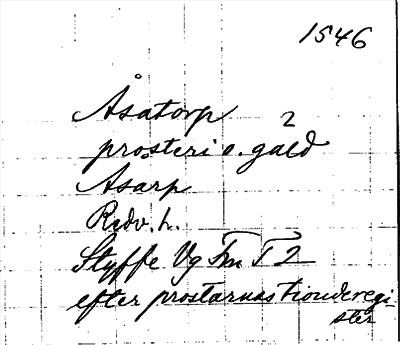 1546
Åsatorp
prosteri o. gäld 2
Asarp
Redv. h.
Styffe Vg Fm T 2
efter prostarnas tionderegi-
ster